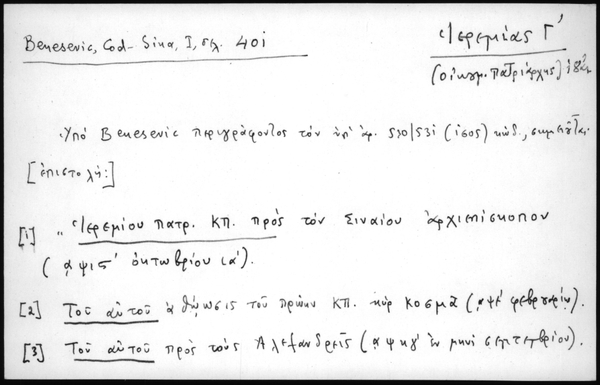 Benesevic, Cod- Sina, I, σελ. 401
Ἱερεμίας Γ'
(Οἰκουμ. Πατριάρχης)
Ὑπό Benesevic περιγράφοντος τόν ὑπ' ἀρ. 530/531 (ἰσος) κώδ., σημειοῦται
[ἐπιστολή:]
[1] „ Ἱερεμίου πατρ. ΚΠ. πρός τόν Σιναίου ἀρχιεπίσκοπον
(αψις' ὀκτωβρίου ια').
[2] Τοῦ αὐτοῦ ἀθώωσις τοῦ πρώην ΚΠ. κύρ Κοσμᾶ (φεβρουαρίου).
[3] Τοῦ αὐτοῦ πρός τούς Ἀλεξανδρεῖς (αψκγ' ἐν μηνί σεπτεμβρίου).